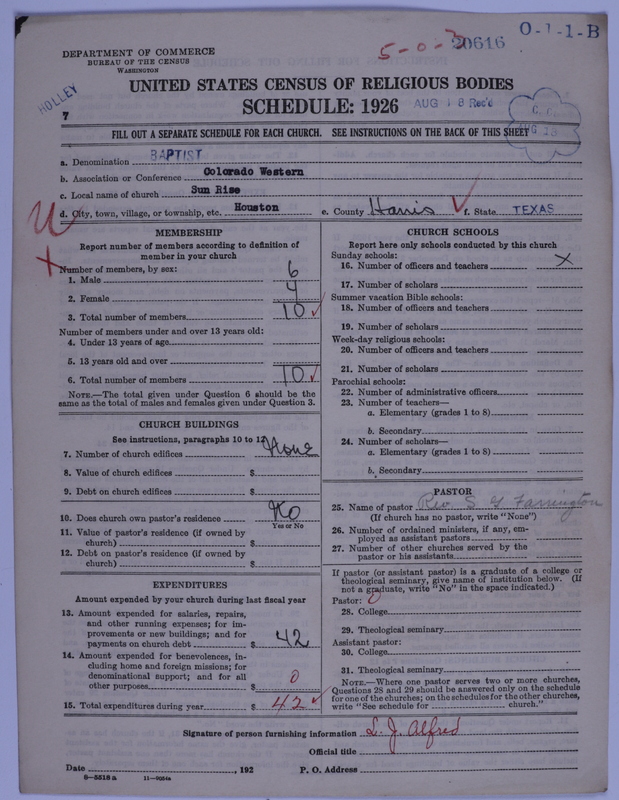 5-0-3 20616 O-1-1-B
DEPARTMENT OF COMMERCE
BUREAU OF THE CENSUS
WASHINGTON
HOLLEY
UNITED STATES CENSUS OF RELIGIOUS BODIES
SCHEDULE: 1926 AUG 18 Rec'd
7
C. C. AUG 18
FILL OUT A SEPARATE SCHEDULE FOR EACH CHURCH. SEE INSTRUCTIONS ON THE BACK OF THIS SHEET
a. Denomination BAPTIST
b. Association or Conference Colorado Western
c. Local name of church Sun Rise
d. City, town, village, or township, etc. Houston e. County Harris f. State TEXAS
MEMBERSHIP
Report number of members according to definition of
member in your church
Number of members, by sex:
1. Male 6
2. Female 4
3. Total number of members 10
Number of members under and over 13 years old:
4. Under 13 years of age
5. 13 years old and over
6. Total number of members 10
NOTE.—The total given under Question 6 should be the
same as the total of males and females given under Question 3.
CHURCH BUILDINGS
See instructions, paragraphs 10 to 12
7. Number of church edifices None
8. Value of church edifices $
9. Debt on church edifices $
10. Does church own pastor's residence No
Yes or No
11. Value of pastor's residence (if owned by
church) $
12. Debt on pastor's residence (if owned by
church) $
EXPENDITURES
Amount expended by your church during last fiscal year
13. Amount expended for salaries, repairs,
and other running expenses; for im-
provements or new buildings; and for
payments on church debt $ 42
14. Amount expended for benevolences, in-
cluding home and foreign missions; for
denominational support; and for all
other purposes $ 0
15. Total expenditures during year $ 42
CHURCH SCHOOLS
Report here only schools conducted by this church
Sunday schools:
16. Number of officers and teachers X
17. Number of scholars
Summer vacation Bible schools:
18. Number of officers and teachers
19. Number of scholars
Week-day religious schools:
20. Number of officers and teachers
21. Number of scholars
Parochial schools:
22. Number of administrative officers
23. Number of teachers—
a. Elementary (grades 1 to 8)
b. Secondary
24. Number of scholars—
a. Elementary (grades 1 to 8)
b. Secondary
PASTOR
25. Name of pastor Rev S G Farrington
(If church has no pastor, write "None")
26. Number of ordained ministers, if any, em-
ployed as assistant pastors
27. Number of other churches served by the
pastor or his assistants
If pastor (or assistant pastor) is a graduate of a college or
theological seminary, give name of institution below. (If
not a graduate, write "No" in the space indicated.)
Pastor: 0
28. College
29. Theological seminary
Assistant pastor:
30. College
31. Theological seminary
NOTE.—Where one pastor serves two or more churches,
Questions 28 and 29 should be answered only on the schedule
for one of the churches; on the schedules for the other churches,
write "See schedule for church."
Signature of person furnishing information L. J. Alfred
Official title
Date , 192 P. O. Address
8-5518a 11-9024a